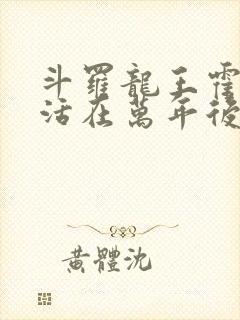 斗羅龍王霍
活在萬年後
黃體沈